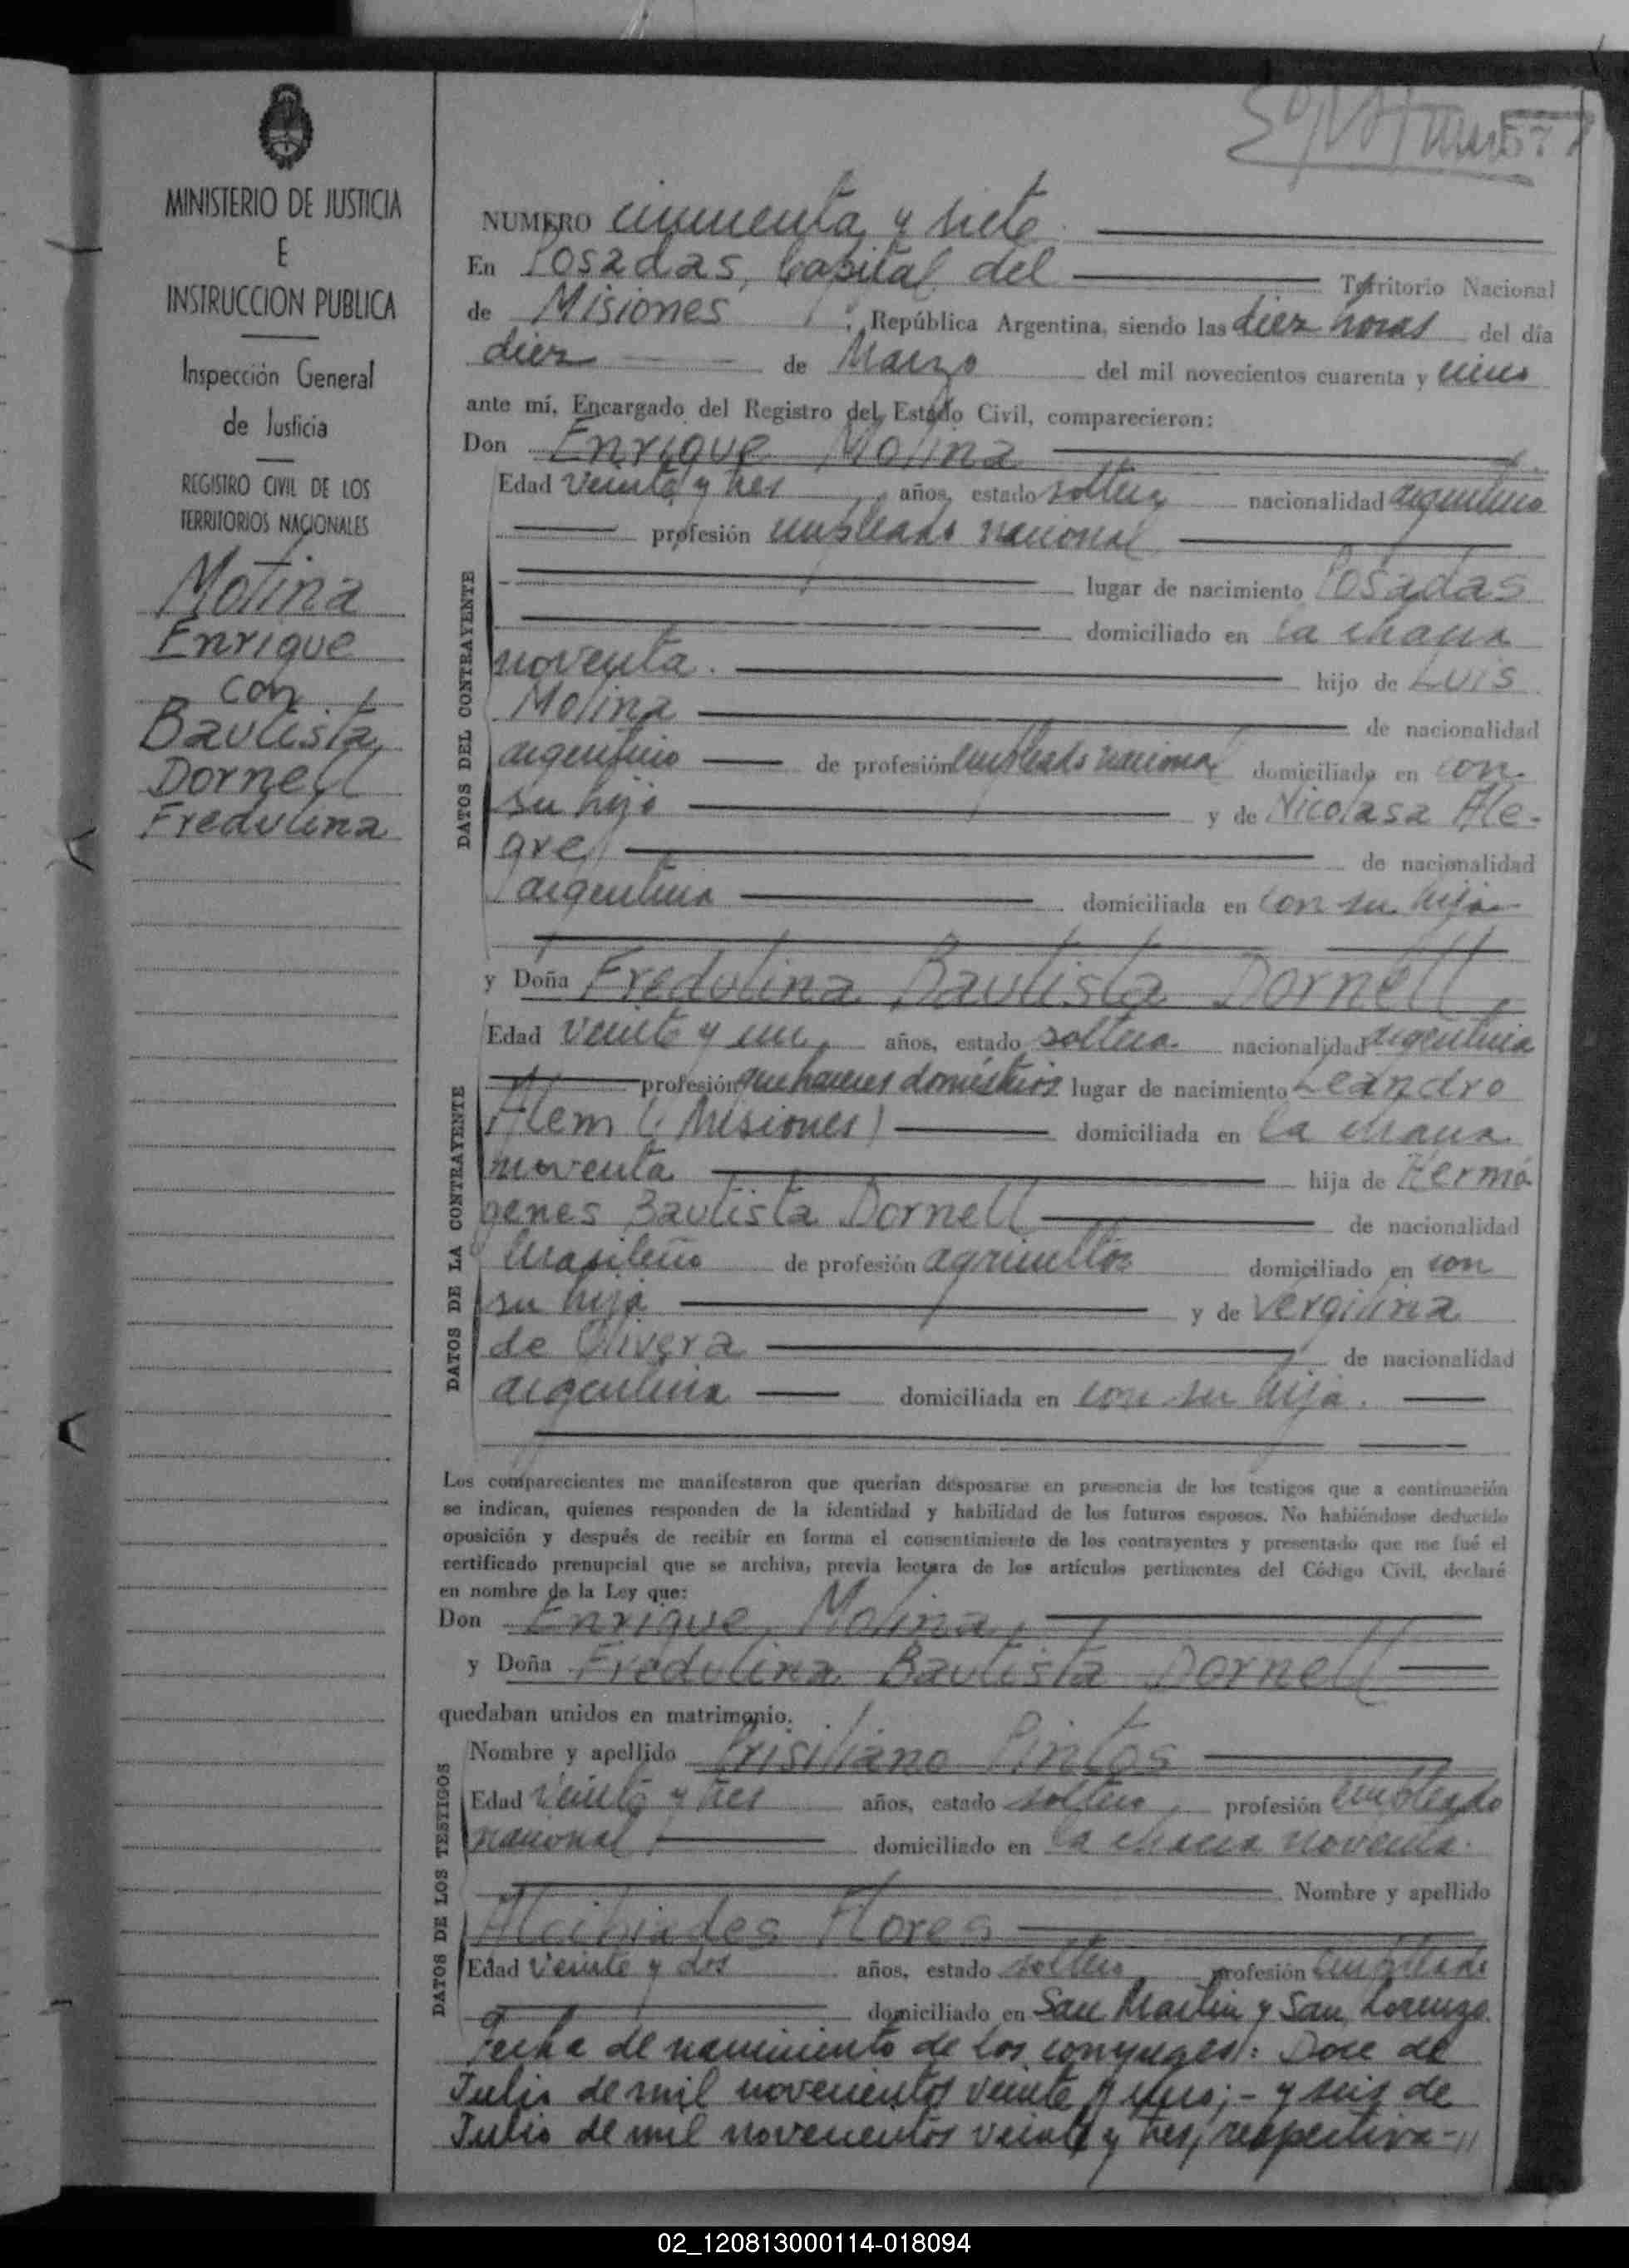 57
MINISTERIO DE JUSTICIA
E
INSTRUCCION PUBLICA
Inspección General
de Justicia
REGISTRO CIVIL DE LOS
TERRITORIOS NACIONALES
Molina
Enrique
con
Bautista
Dornell
Fredulina
NUMERO cincuenta y siete
En Posadas, Capital del Territorio Nacional
de Misiones, República Argentina, siendo las diez horas del día
diez de Marzo del mil novecientos cuarenta y cinco
ante mí, Encargado del Registro del Estado Civil, comparecieron:
Don Enrique Molina
DATOS DEL CONTRAYENTE
Edad veinte y tres años, estado soltero nacionalidad argentino
profesión empleado nacional
lugar de nacimiento Posadas
domiciliado en la chacra
noventa. hijo de Luis
Molina de nacionalidad
argentino de profesión empleado nacional domiciliado en con
su hijo y de Nicolasa Ale-
gre de nacionalidad
argentina domiciliada en con su hijo
y Doña Fredulina Bautista Dornell
DATOS DE LA CONTRAYENTE
Edad veinte y un años, estado soltera nacionalidad argentina
profesión quehaceres domésticos lugar de nacimiento Leandro
Alem (Misiones) domiciliada en la chacra
noventa hija de Hermó
genes Bautista Dornell de nacionalidad
brasileño de profesión agricultor domiciliado en con
su hija y de Vergilina
de Olivera de nacionalidad
argentina domiciliada en con su hija.
Los comparecientes me manifestaron que querían desposarse en presencia de los testigos que a continuación
se indican, quienes responden de la identidad y habilidad de los futuros esposos. No habiéndose deducido
oposición y después de recibir en forma el consentimiento de los contrayentes y presentado que me fué el
certificado prenupcial que se archiva, previa lectura de los artículos pertinentes del Código Civil, declaré
en nombre de la Ley que:
Don Enrique Molina,
y Doña Fredulina Bautista Dornell
quedaban unidos en matrimonio.
DATOS DE LOS TESTIGOS
Nombre y apellido Prisiliano Pintos
Edad veinte y tres años, estado soltero, profesión empleado
nacional domiciliado en la chacra noventa.
Nombre y apellido
Alcibiades Flores
Edad veinte y dos años, estado soltero profesión empleado
domiciliado en San Martin y San Lorenzo.
Fecha de nacimiento de los conyuges: Doce de
Julio de mil novecientos veinte y uno; - y seis de
Julio de mil novecientos veinte y tres, respectiva-//
02_120813000114-018094